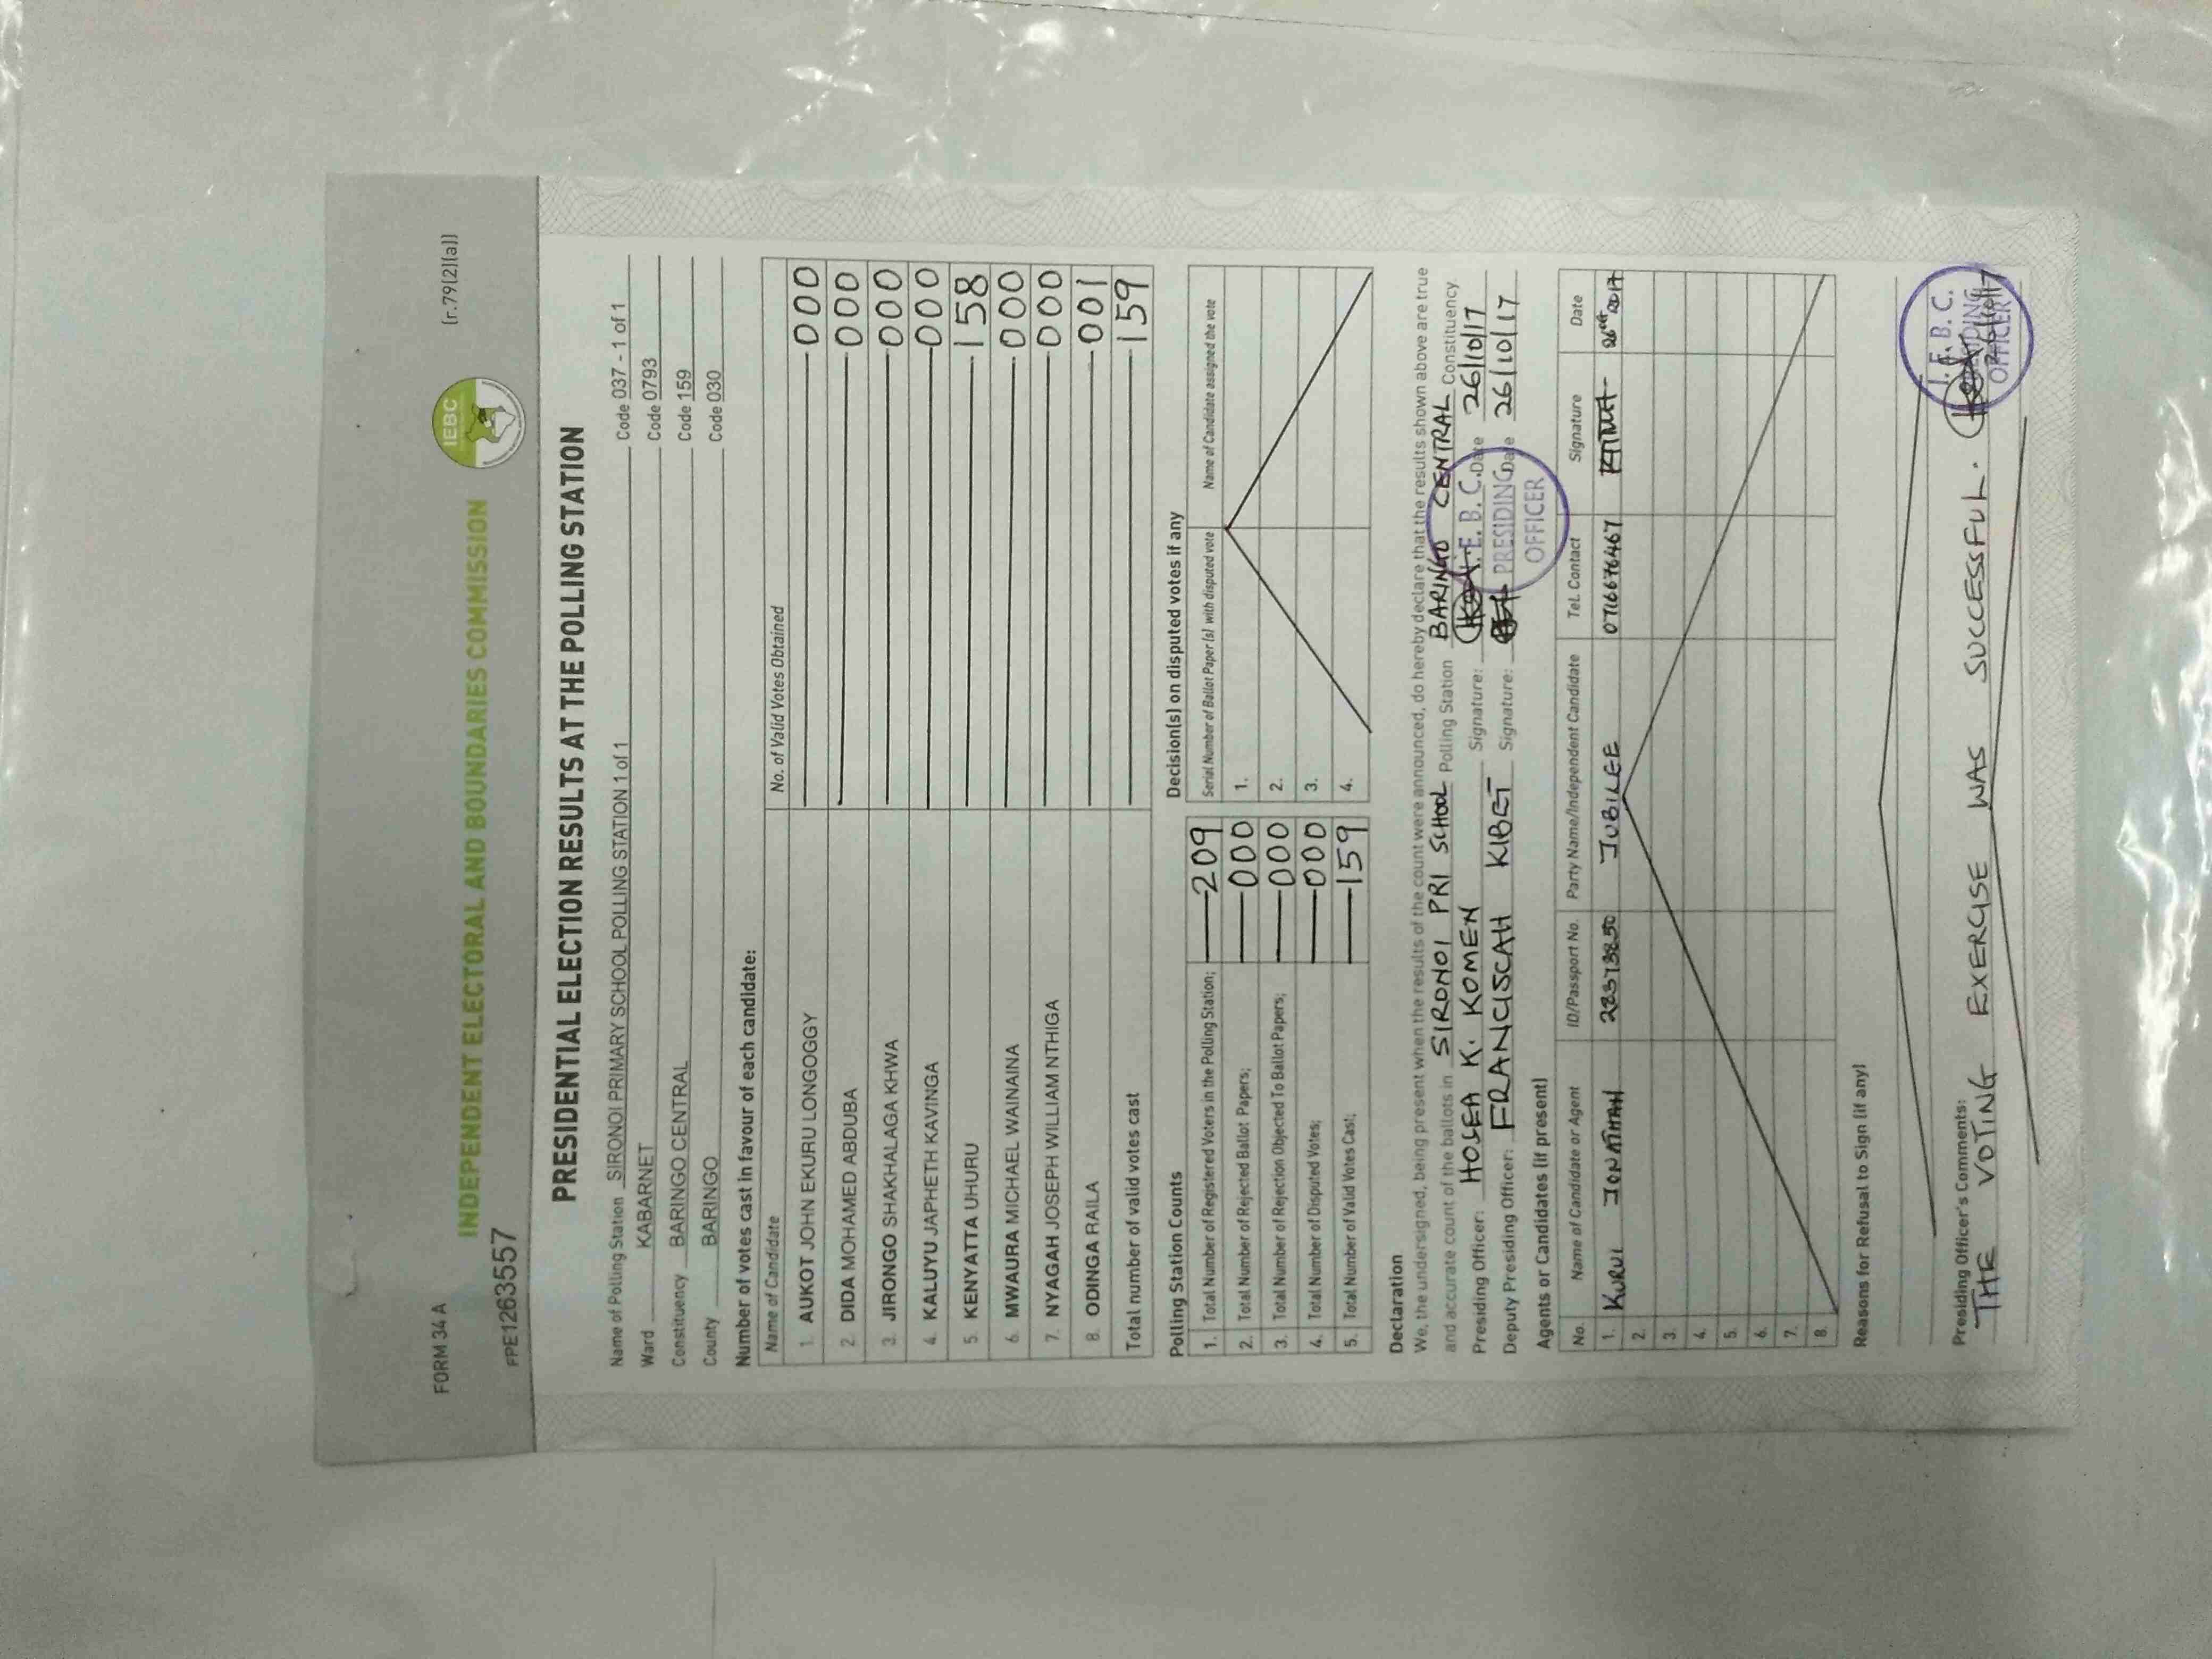 FORM 34 A
[r.79(2)(a)]
INDEPENDENT ELECTORAL AND BOUNDARIES COMMISSION
IEBC
FPE1263557
PRESIDENTIAL ELECTION RESULTS AT THE POLLING STATION
Name of Polling Station SIRONOI PRIMARY SCHOOL POLLING STATION 1 of 1 Code 037 - 1 of 1
Ward KABARNET Code 0793
Constituency BARINGO CENTRAL Code 159
County BARINGO Code 030
Number of votes cast in favour of each candidate:
Name of Candidate No. of Valid Votes Obtained
1. AUKOT JOHN EKURU LONGOGGY 000
2. DIDA MOHAMED ABDUBA 000
3. JIRONGO SHAKHALAGA KHWA 000
4. KALUYU JAPHETH KAVINGA 000
5. KENYATTA UHURU 158
6. MWAURA MICHAEL WAINAINA 000
7. NYAGAH JOSEPH WILLIAM NTHIGA 000
8. ODINGA RAILA 001
Total number of valid votes cast 159
Polling Station Counts
1. Total Number of Registered Voters in the Polling Station; 209
2. Total Number of Rejected Ballot Papers; 000
3. Total Number of Rejection Objected To Ballot Papers; 000
4. Total Number of Disputed Votes; 000
5. Total Number of Valid Votes Cast; 159
Decision(s) on disputed votes if any
Serial Number of Ballot Paper (s) with disputed vote Name of Candidate assigned the vote
1.
2.
3.
4.
Declaration
We, the undersigned, being present when the results of the count were announced, do hereby declare that the results shown above are true
and accurate count of the ballots in SIRONOI PRI SCHOOL Polling Station BARINGO CENTRAL Constituency.
Presiding Officer: HOSEA K. KOMEN Signature: Date 26/10/17
Deputy Presiding Officer: FRANCISCAH KIBET Signature: Date 26/10/17
I.E.B.C.
PRESIDING
OFFICER
Agents or Candidates (if present)
No. Name of Candidate or Agent ID/Passport No. Party Name/Independent Candidate Tel. Contact Signature Date
1. KURUI JONATHAN JUBILEE 0716676467 26th 2017
2.
3.
4.
5.
6.
7.
8.
Reasons for Refusal to Sign (if any)
Presiding Officer's Comments:
THE VOTING EXERCISE WAS SUCCESSFUL.
I.E.B.C.
PRESIDING
OFFICER